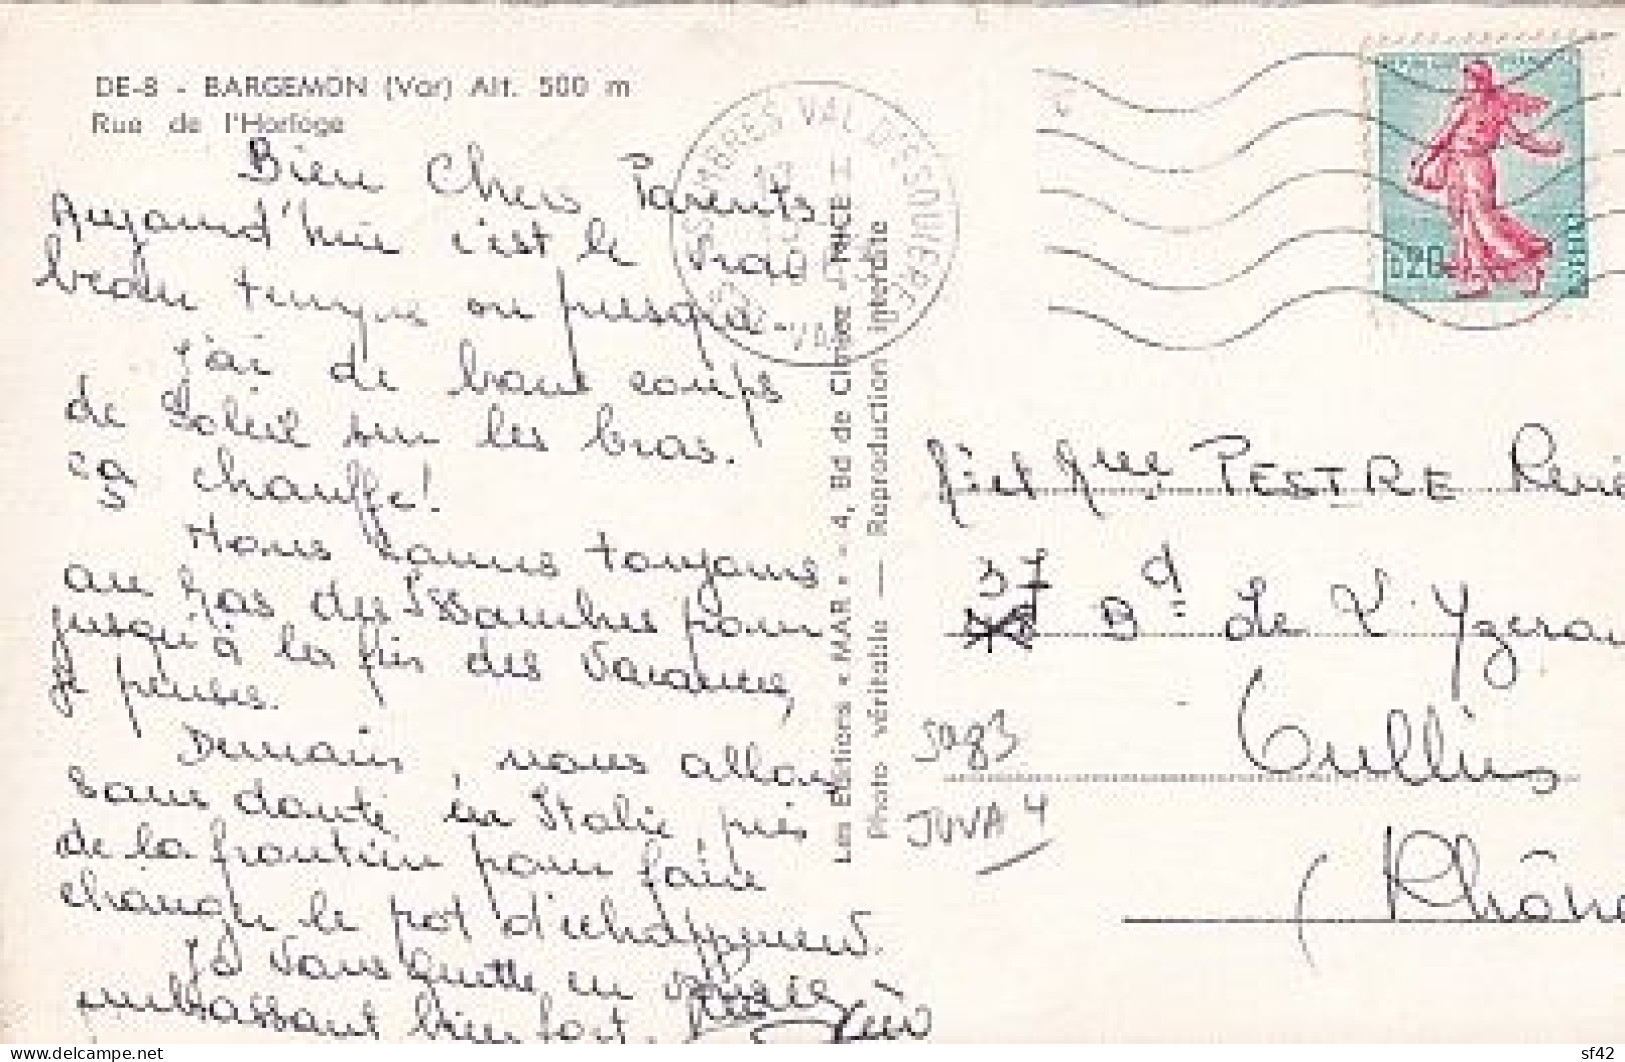 DE-8 - BARGEMON (Var) Alt. 500 m
Rue de l'Horloge
Bien Chers Parents
Aujourd'hui c'est le vrai
beau temps ou presque.
J'ai de beaux coups
de Soleil sur les bras.
ça chauffe!
Nous sommes toujours
au bas des Issambres pour
jusqu'à la fin des Vacances,
je pense.
Demain, nous allons
sans doute en Italie, près
de la frontière pour faire
changer le pot d'échappement.
Je vous quitte en vous
embrassant bien fort.
Les Editions « MAR » - 4, Bd de Cimiez - NICE
Photo véritable — Reproduction interdite
ISSAMBRES VAL D'ESQUIERES
VAR
0,20
PESTRE René
37
Bd de L'Yzeron
Oullins
(Rhône
5983
JUVA 4
sf42